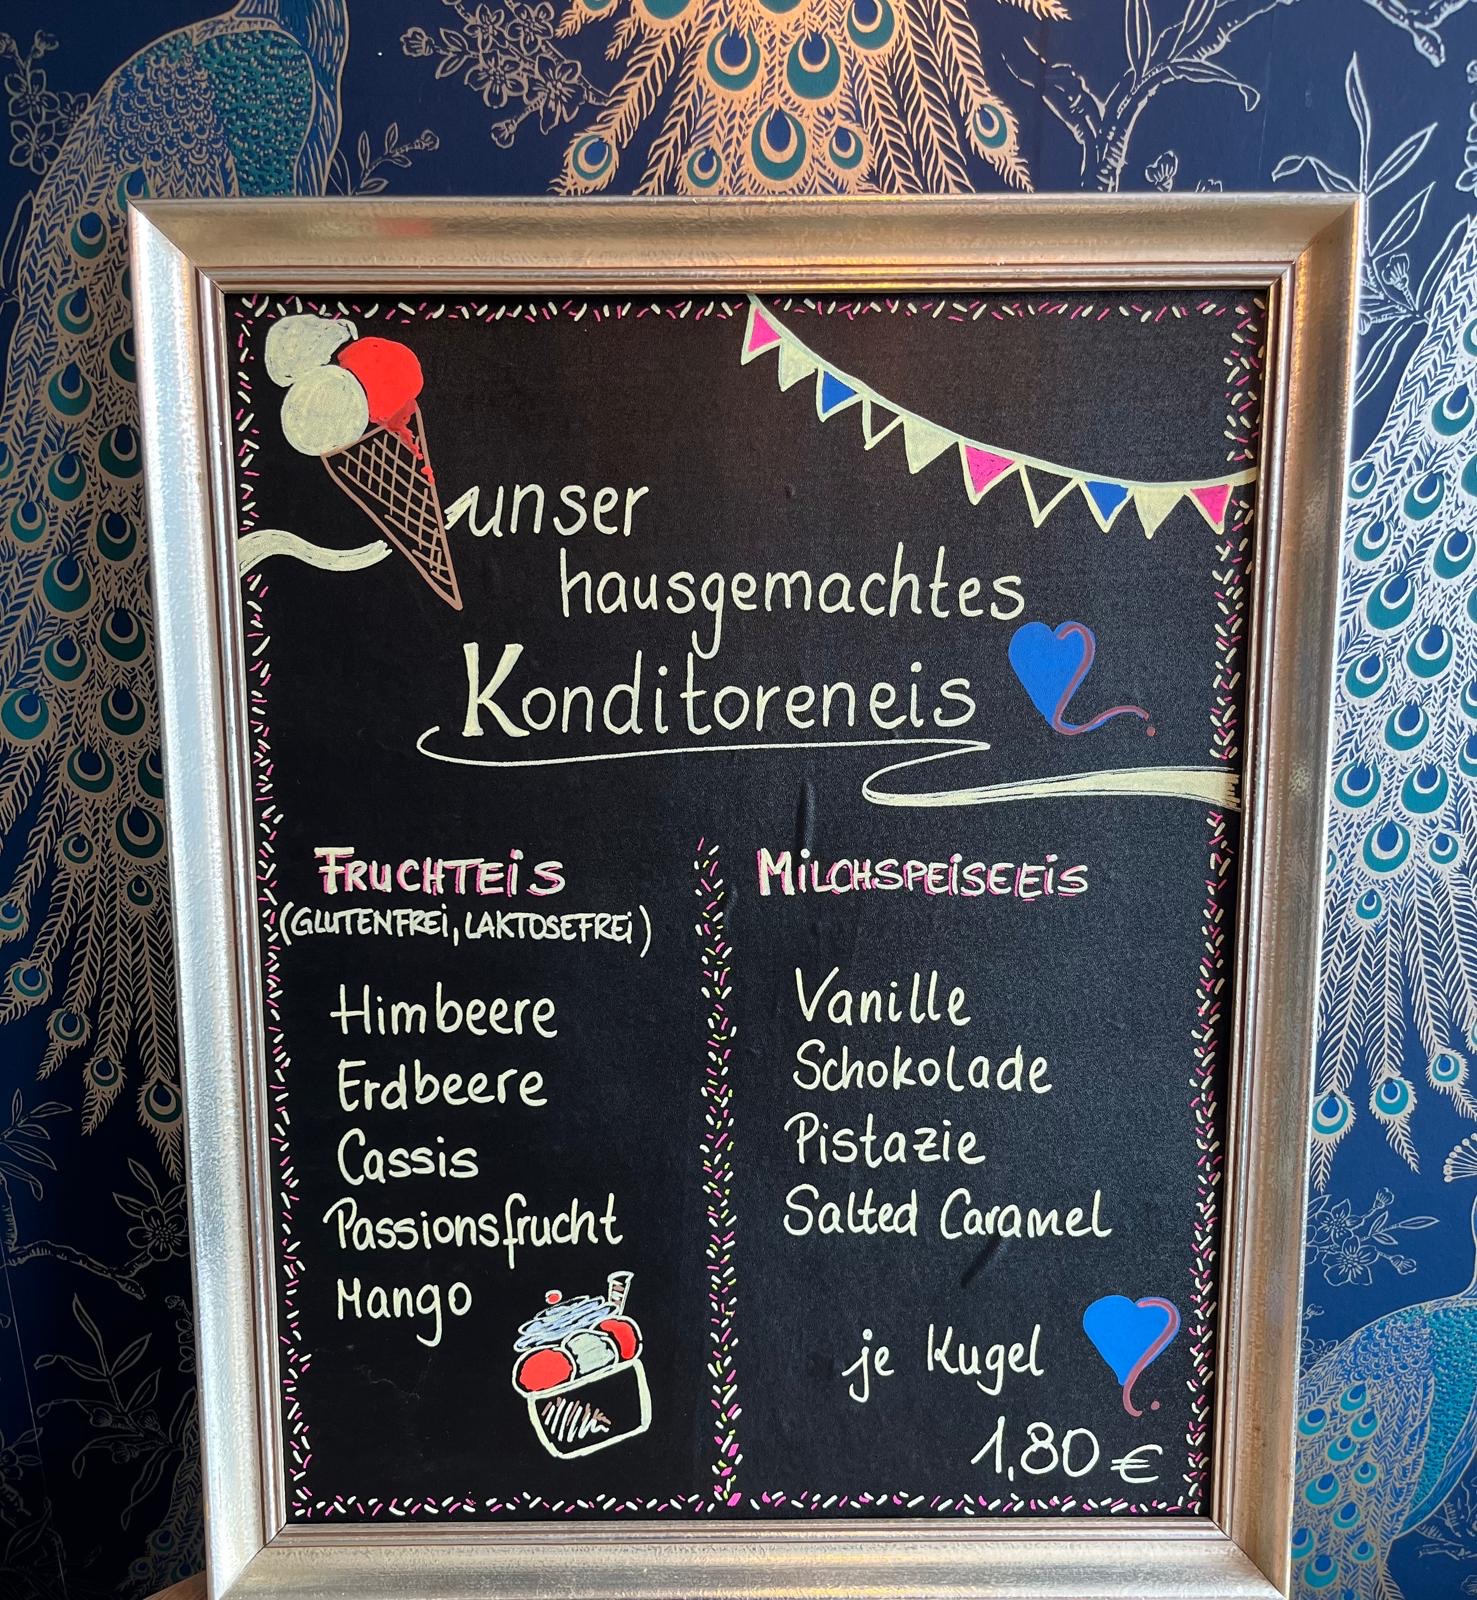 unser
hausgemachtes
Konditoreneis
FRUCHTEiS
(GLUTENFREi, LAKTOSEFREi)
Himbeere
Erdbeere
Cassis
Passionsfrucht
Mango
MiLCHSPEiSEEiS
Vanille
Schokolade
Pistazie
Salted Caramel
je Kugel
1,80 €